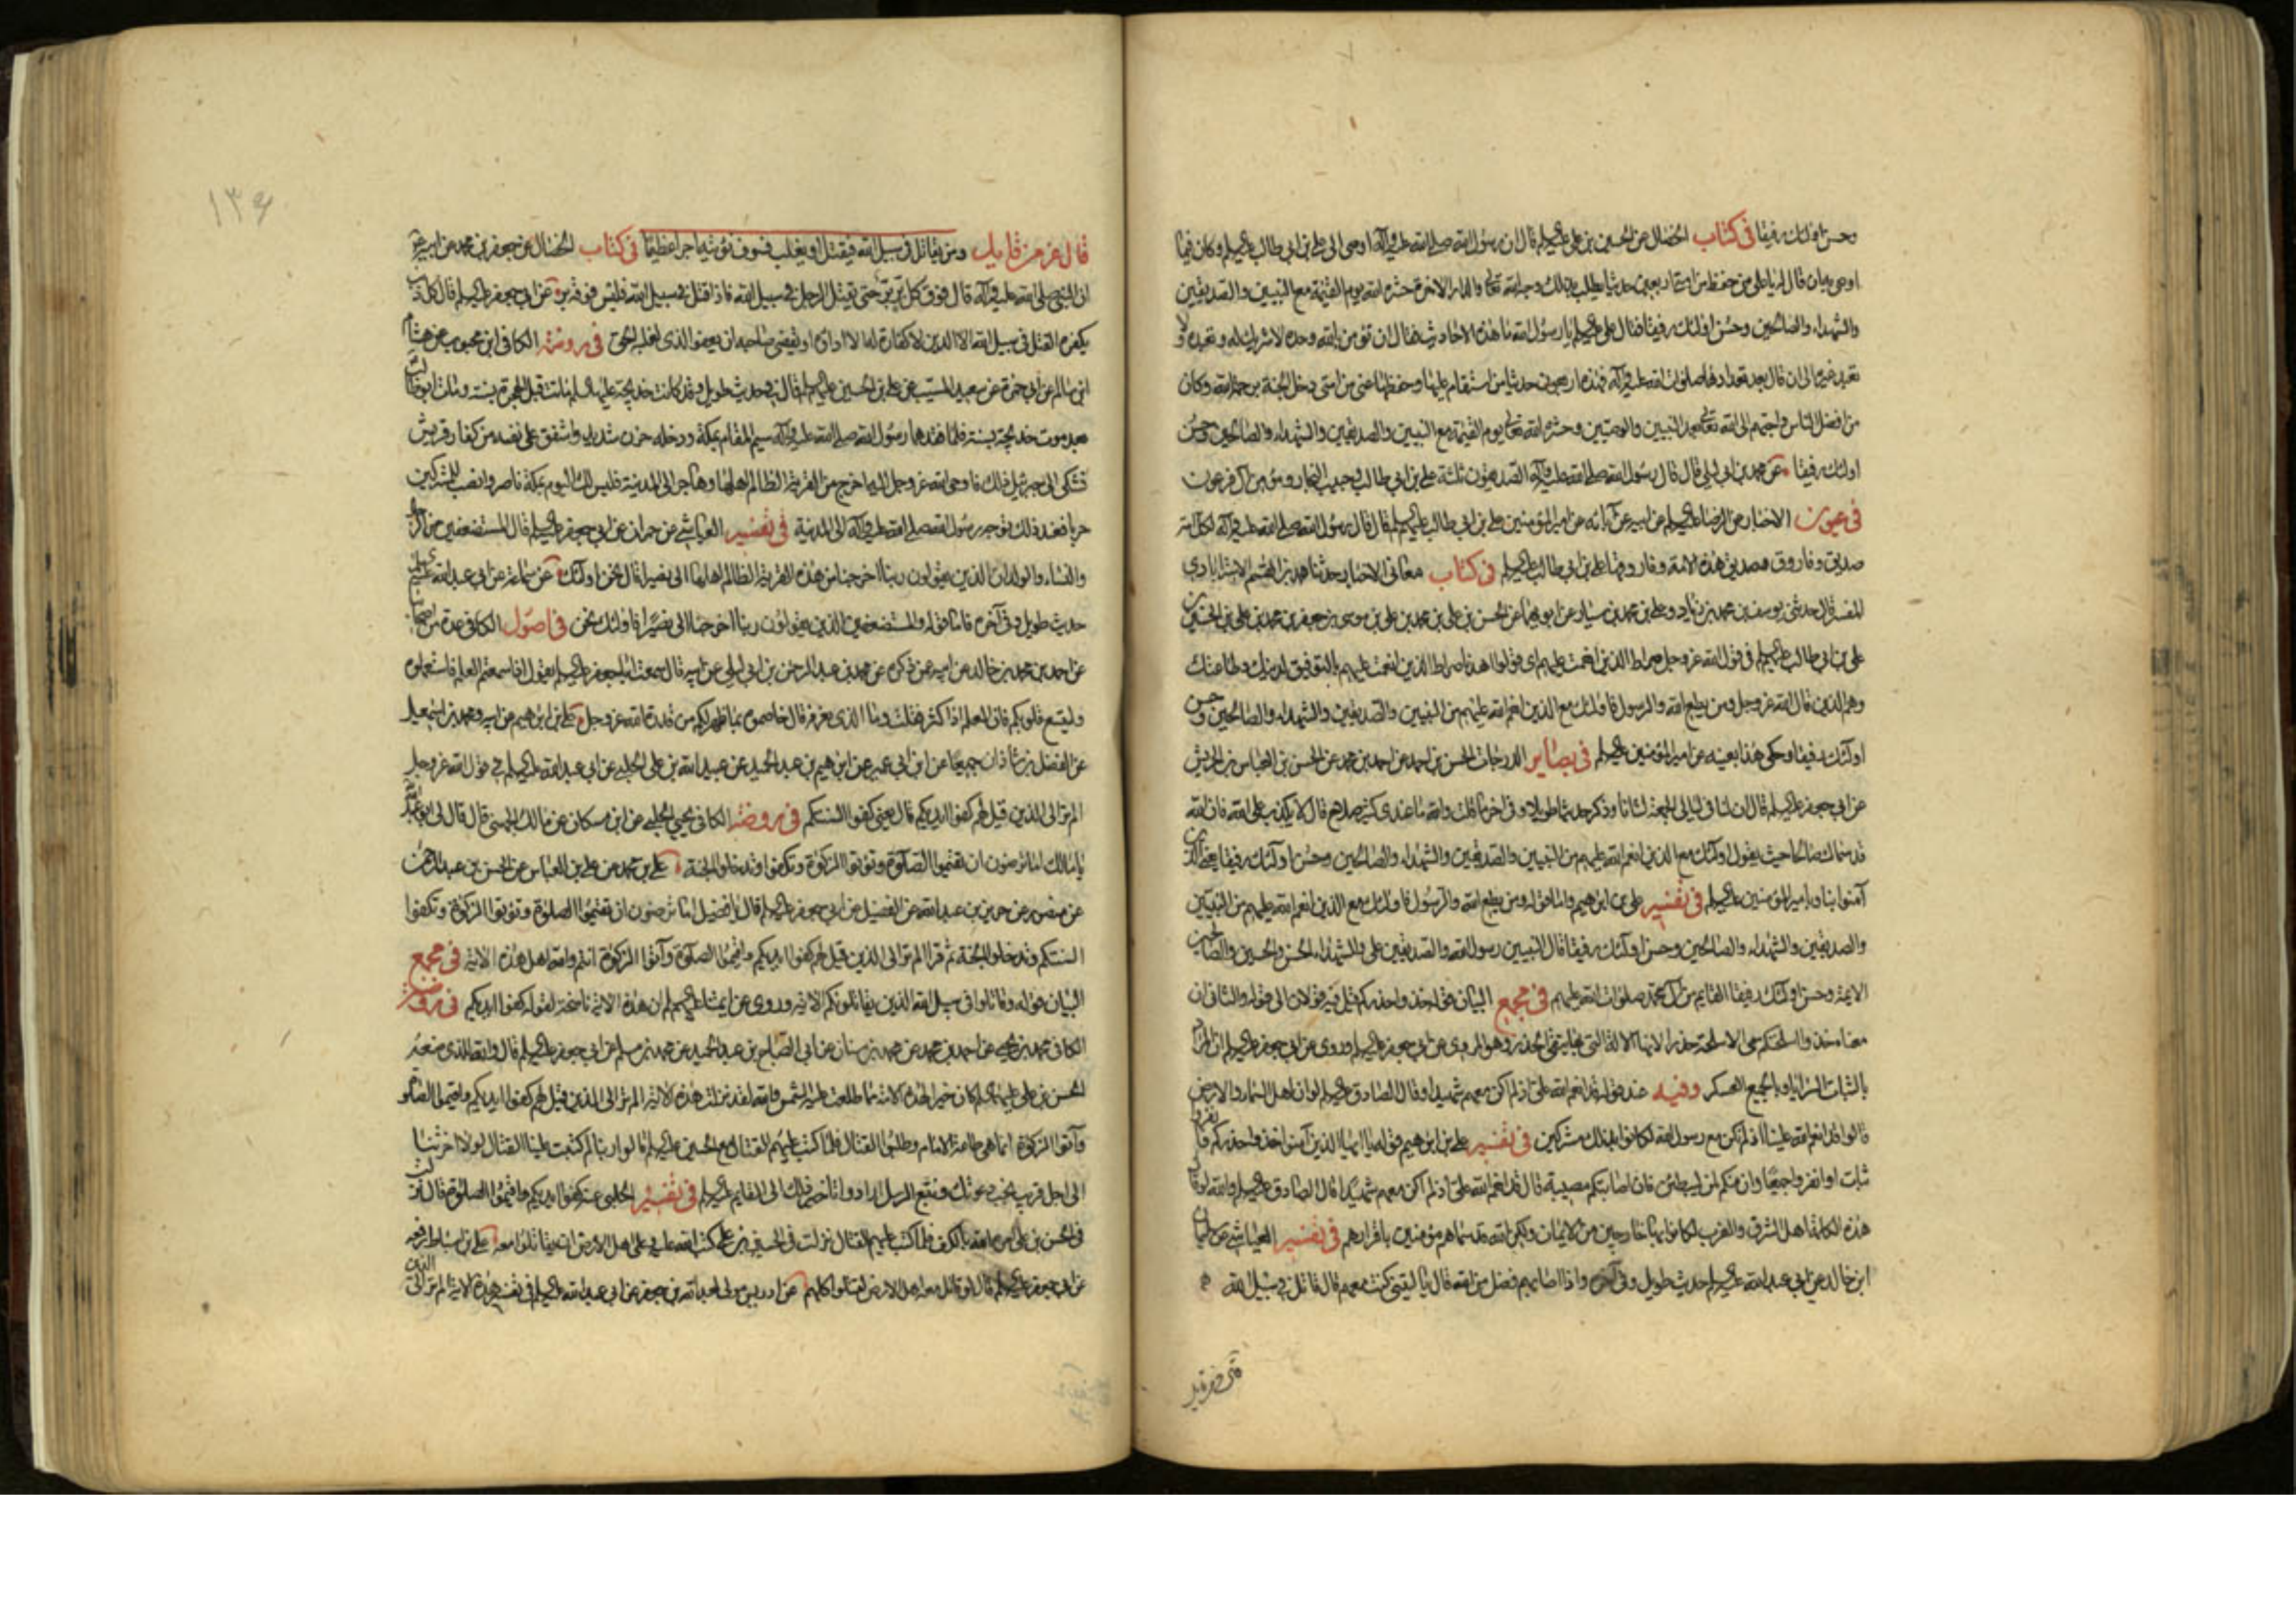 وحسن اولئك رفيقا فى كتاب الخصال عن الحسين بن على عليهالسلم قال ان رسول الله صلى الله عليه وآله اوصى الى على بن ابى طالب عليهالسلم وكان فيما
اوصى به ان قال له يا على من حفظ من امتى اربعين حديثا يطلب بذلك وجه الله تعالى والدار الاخرة حشره الله يوم القيمة مع النبيين والصديقين
والشهداء والصالحين وحسن اولئك رفيقا فقال على عليهالسلم يا رسول الله ما هذه الاحاديث فقال ان تؤمن بالله وحده لا شريك له وتعبده ولا
تعبد غيره الى ان قال بعد تعدادها صلوات الله عليه وآله فهذه اربعون حديثا من استقام عليها وحفظها عنى من امتى دخل الجنة برحمة الله وكان
من افضل الناس واحبهم الى الله تعالى بعد النبيين والوصيين وحشره الله تعالى يوم القيمة مع النبيين والصديقين والشهداء والصالحين وحسن
اولئك رفيقا عن محمد بن ابى ليلى قال قال رسول الله صلى الله عليه وآله الصديقون ثلثة على بن ابى طالب وحبيب النجار ومؤمن آل فرعون
فى عيون الاخبار عن الرضا عليهالسلم عن ابيه عن آبائه عن امير المؤمنين على بن ابى طالب عليهمالسلم قال قال رسول الله صلى الله عليه وآله لكل امة
صديق وفاروق وصديق هذه الامة وفاروقها على بن ابى طالب عليهالسلم فى كتاب معانى الاخبار حدثنا محمد بن القسم الاسترابادى
المفسر قال حدثنى يوسف بن محمد بن زياد وعلى بن محمد بن سيار عن ابويهما عن الحسن بن على بن محمد بن على بن موسى بن جعفر بن محمد بن على بن الحسين بن
على بن ابى طالب عليهمالسلم فى قول الله عز وجل صراط الذين انعمت عليهم اى قولوا اهدنا صراط الذين انعمت عليهم بالتوفيق لدينك وطاعتك
وهم الذين قال الله عز وجل ومن يطع الله والرسول فاولئك مع الذين انعم الله عليهم من النبيين والصديقين والشهداء والصالحين وحسن
اولئك رفيقا وحكى هذا بعينه عن امير المؤمنين عليهالسلم فى بصاير الدرجات الحسن بن احمد عن احمد بن محمد عن الحسن بن العباس بن الحريش
عن ابى جعفر عليهالسلم قال ان لنا فى ليالى الجمعة لشانا وذكر حديثا طويلا وفى اخره قلت والله ما عندى كثير صلاح قال لا تكذب على الله فان الله
قد سماك صالحا حيث يقول اولئك مع الذين انعم الله عليهم من النبيين والصديقين والشهداء والصالحين وحسن اولئك رفيقا يعنى الذين
آمنوا بنا وبامير المؤمنين عليهالسلم فى تفسير على بن ابراهيم واما قوله ومن يطع الله والرسول فاولئك مع الذين انعم الله عليهم من النبيين
والصديقين والشهداء والصالحين وحسن اولئك رفيقا قال النبيين رسول الله والصديقين على والشهداء الحسن والحسين والصالحين
الايمة وحسن اولئك رفيقا القايم من آل محمد صلوات الله عليهم فى مجمع البيان قوله خذوا حذركم قيل فيه قولان الى قوله والثانى ان
معناه خذوا اسلحتكم سمى الاسلحة حذرا لانها الالة التى بها يتقى الحذر وهو المروى عن ابى جعفر عليهالسلم وروى عن ابى جعفر عليهالسلم ان المراد
بالثبات السرايا وبالجميع العسكر وفيه عند قوله قد انعم الله على اذ لم اكن معهم شهيدا وقال الصادق عليهالسلم لو ان اهل السماء والارض
قالوا قد انعم الله علينا اذ لم نكن مع رسول الله لكانوا بذلك مشركين فى تفسير على بن ابراهيم قوله يا ايها الذين آمنوا خذوا حذركم فانفروا
ثبات او انفروا جميعا وان منكم لمن ليبطئن فان اصابتكم مصيبة قال قد انعم الله على اذ لم اكن معهم شهيدا قال الصادق عليهالسلم والله لو قال
هذه الكلمة اهل الشرق والغرب لكانوا بها خارجين من الايمان ولكن الله قد سماهم مؤمنين باقرارهم فى تفسير العياشى عن سليمان
ابن خالد عن ابى عبد الله عليهالسلم حديث طويل وفى آخره واذا اصابهم فضل من الله قال يا ليتنى كنت معهم قاتل فى سبيل الله
١٣٩
قال عز من قايل ومن يقاتل فى سبيل الله فيقتل او يغلب فسوف نؤتيه اجرا عظيما فى كتاب الخصال عن جعفر بن محمد عن ابيه عن
ان النبى صلى الله عليه وآله قال فوق كل بر بر حتى يقتل الرجل فى سبيل الله فاذا قتل فى سبيل الله فليس فوقه بر عن ابى جعفر عليهالسلم قال كل ذنب
يكفره القتل فى سبيل الله الا الدين لا كفارة له الا اداؤه او يقضى صاحبه او يعفو الذى له الحق فى روضة الكافى ابن محبوب عن هشام
ابن سالم عن ابى حمزة عن سعيد المسيب عن على بن الحسين عليهماالسلم قال فى حديث طويل وقد كانت خديجة عليهاالسلم ماتت قبل الهجرة بسنة ومات ابوطالب
بعد موت خديجة بسنة فلما فقدهما رسول الله صلى الله عليه وآله سيم المقام بمكة ودخله حزن شديد واشفق على نفسه من كفار قريش
فشكى الى جبرئيل ذلك فاوحى الله عز وجل اليه اخرج من القرية الظالم اهلها وهاجر الى المدينة فليس لك اليوم بمكة ناصر وانصب للمشركين
حربا فعند ذلك توجه رسول الله صلى الله عليه وآله الى المدينة فى تفسير العياشى عن حمران عن ابى جعفر عليهالسلم قال المستضعفين من الرجال
والنساء والولدان الذين يقولون ربنا اخرجنا من هذه القرية الظالم اهلها الى نصيرا قال نحن اولئك عن سماعة عن ابى عبد الله عليهالسلم
حديث طويل وفى آخره فاما قوله والمستضعفين الذين يقولون ربنا اخرجنا الى نصيرا فاولئك نحن فى اصول الكافى عدة من اصحابنا
عن احمد بن محمد بن خالد عن ابيه عمن ذكره عن محمد بن عبد الرحمن بن ابى ليلى عن ابيه قال سمعت ابا جعفر عليهالسلم يقول اذا سمعتم العلم فاستعملوه
وليتسع قلوبكم فان العلم اذا كثر فى قلب وما الذى نعرفه قال خاصموه بما ظهر لكم من قدرة الله عز وجل على بن ابراهيم عن ابيه ومحمد بن اسمعيل
عن الفضل بن شاذان جميعا عن ابن ابى عمير عن ابراهيم بن عبد الحميد عن عبيد الله بن على الحلبى عن ابى عبد الله عليهالسلم فى قول الله عز وجل
الم تر الى الذين قيل لهم كفوا ايديكم قال يعنى كفوا السنتكم فى روضة الكافى يحيى الحلبى عن ابن مسكان عن مالك الجهنى قال قال لى ابو عبد الله
يا مالك اما ترضون ان تقيموا الصلوة وتؤتوا الزكوة وتكفوا وتدخلوا الجنة على بن محمد عن على بن العباس عن الحسن بن عبد الرحمن
عن منصور عن حريز بن عبد الله عن الفضيل عن ابى جعفر عليهالسلم قال يا فضيل اما ترضون ان تقيموا الصلوة وتؤتوا الزكوة وتكفوا
السنتكم وتدخلوا الجنة ثم قرا الم تر الى الذين قيل لهم كفوا ايديكم واقيموا الصلوة وآتوا الزكوة انتم والله اهل هذه الاية فى مجمع
البيان قوله وقاتلوا فى سبيل الله الذين يقاتلونكم الاية وروى عن ايمتنا عليهمالسلم ان هذه الاية ناسخة لقوله كفوا ايديكم فى روضة
الكافى محمد بن يحيى عن احمد بن محمد عن محمد بن سنان عن ابى الصباح بن عبد الحميد عن محمد بن مسلم عن ابى جعفر عليهالسلم قال والله الذى صنعه
الحسن بن على عليهماالسلم كان خيرا لهذه الامة مما طلعت عليه الشمس والله لقد نزلت هذه الاية الم تر الى الذين قيل لهم كفوا ايديكم واقيموا الصلوة
وآتوا الزكوة انما هى طاعة الامام وطلبوا القتال فلما كتب عليهم القتال مع الحسين عليهالسلم قالوا ربنا لم كتبت علينا القتال لولا اخرتنا
الى اجل قريب نجب دعوتك ونتبع الرسل ارادوا تاخير ذلك الى القايم عليهالسلم فى تفسير الحلبى عنه كفوا ايديكم واقيموا الصلوة قال نزلت
فى الحسن بن على امره الله بالكف فلما كتب عليهم القتال نزلت فى الحسين بن على كتب الله عليه وعلى اهل الارض ان يقاتلوا معه على بن اسباط رفعه
عن ابى جعفر عليهالسلم قال لو قاتل معه اهل الارض لقتلوا كلهم عن ادريس مولى لعبد الله بن جعفر عن ابى عبد الله عليهالسلم فى تفسير هذه الاية الم تر الى الذين